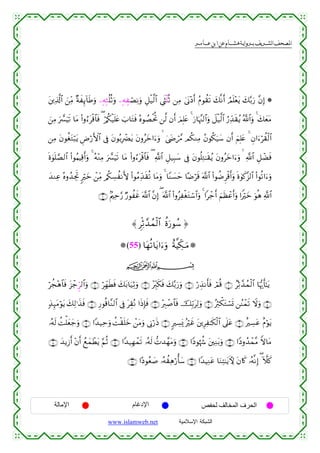 المصحف الشريف برواية هشام عن ابن عامر
۞ إِنَّ رَبَّكَ يَعْلَمُ أَنَّكَ تَقُومُ أَدْنَىٰ مِن ثُلْثَىِ ٱلَّيْلِ وَنِصْفِهِۦ وَثُلُثِهِۦ وَطَآئِفَةٌ مِّنَ ٱلَّذِينَ
مَعَكَ ۚ وَٱللَّهُ يُقَدِّرُ ٱلَّيْلَ وَٱلنَّهَارَ ۚ عَلِمَ أَن لَّن تُحْصُوهُ فَتَابَ عَلَيْكُمْ ۖ فَٱقْرَءُوا۟ مَا تَيَسَّرَ مِنَ
ٱلْقُرْءَانِ ۚ عَلِمَ أَن سَيَكُونُ مِنكُم مَّرْضَىٰ ۙ وَءَاخَرُونَ يَضْرِبُونَ فِى ٱلْأَرْضِ يَبْتَغُونَ مِن
فَضْلِ ٱللَّهِ ۙ وَءَاخَرُونَ يُقَـٰتِلُونَ فِى سَبِيلِ ٱللَّهِ ۖ فَٱقْرَءُوا۟ مَا تَيَسَّرَ مِنْهُ ۚ وَأَقِيمُوا۟ ٱلصَّلَوٰةَ
وَءَاتُوا۟ ٱلزَّكَوٰةَ وَأَقْرِضُوا۟ ٱللَّهَ قَرْضًا حَسَنًا ۚ وَمَا تُقَدِّمُوا۟ لِأَنفُسِكُم مِّنْ خَيْرٍ تَجِدُوهُ عِندَ
ٱللَّهِ هُوَ خَيْرًا وَأَعْظَمَ أَجْرًا ۚ وَٱسْتَغْفِرُوا۟ ٱللَّهَ ۖ إِنَّ ٱللَّهَ غَفُورٌ رَّحِيمٌ
﴿ سُورَةُ ٱلْمُدَّثِّرِ ﴾
مَكِّيَّةٌ وَءَايَاتُهَا (55)
بِسْمِ ٱللَّهِ ٱلرَّحْمَـٰنِ ٱلرَّحِيمِ
يَـٰٓأَيُّهَا ٱلْمُدَّثِّرُ قُمْ فَأَنذِرْ وَرَبَّكَ فَكَبِّرْ وَثِيَابَكَ فَطَهِّرْ وَٱلرِّجْزَ فَٱهْجُرْ
وَلَا تَمْنُن تَسْتَكْثِرُ وَلِرَبِّكَ فَٱصْبِرْ فَإِذَا نُقِرَ فِى ٱلنَّاقُورِ فَذَٰلِكَ يَوْمَئِذٍ
يَوْمٌ عَسِيرٌ عَلَى ٱلْكَـٰفِرِينَ غَيْرُ يَسِيرٍ ذَرْنِى وَمَنْ خَلَقْتُ وَحِيدًا وَجَعَلْتُ لَهُۥ
مَالًا مَّمْدُودًا وَبَنِينَ شُهُودًا وَمَهَّدتُّ لَهُۥ تَمْهِيدًا ثُمَّ يَطْمَعُ أَنْ أَزِيدَ
كَلَّآ ۖ إِنَّهُۥ كَانَ لِـَٔايَـٰتِنَا عَنِيدًا سَأُرْهِقُهُۥ صَعُودًا
الحرف المخالف لحفص
الإدغام
الإمالة
الشبكة الإسلامية www.islamweb.net